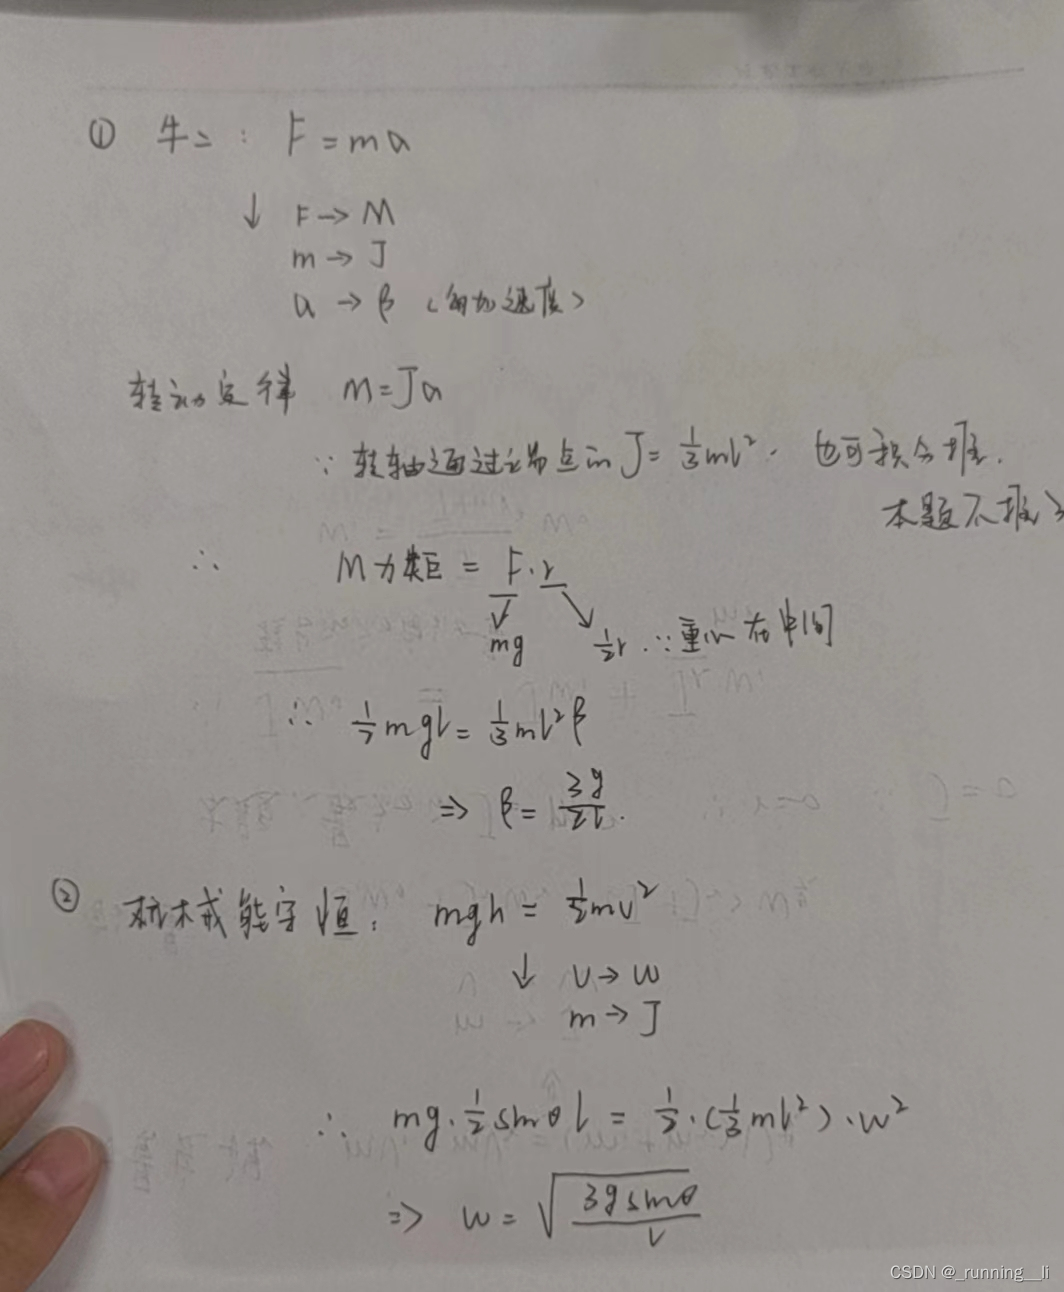 ① 牛二: F=ma
↓ F→M
m→J
a→β (角加速度)
转动定律 M=Ja
∵ 转轴通过端点的J=⅓ml². 也可积分推.
本题不推了
∴ M力矩 = F·r
mg ½r ∵重心在中间
∴ ½mgl = ⅓ml²β
=> β = 3g/2l.
② 机械能守恒: mgh = ½mv²
↓ v→w
m→J
∴ mg·½sinθl = ½·(⅓ml²)·w²
=> w = √(3gsinθ/l)
CSDN @_running__li